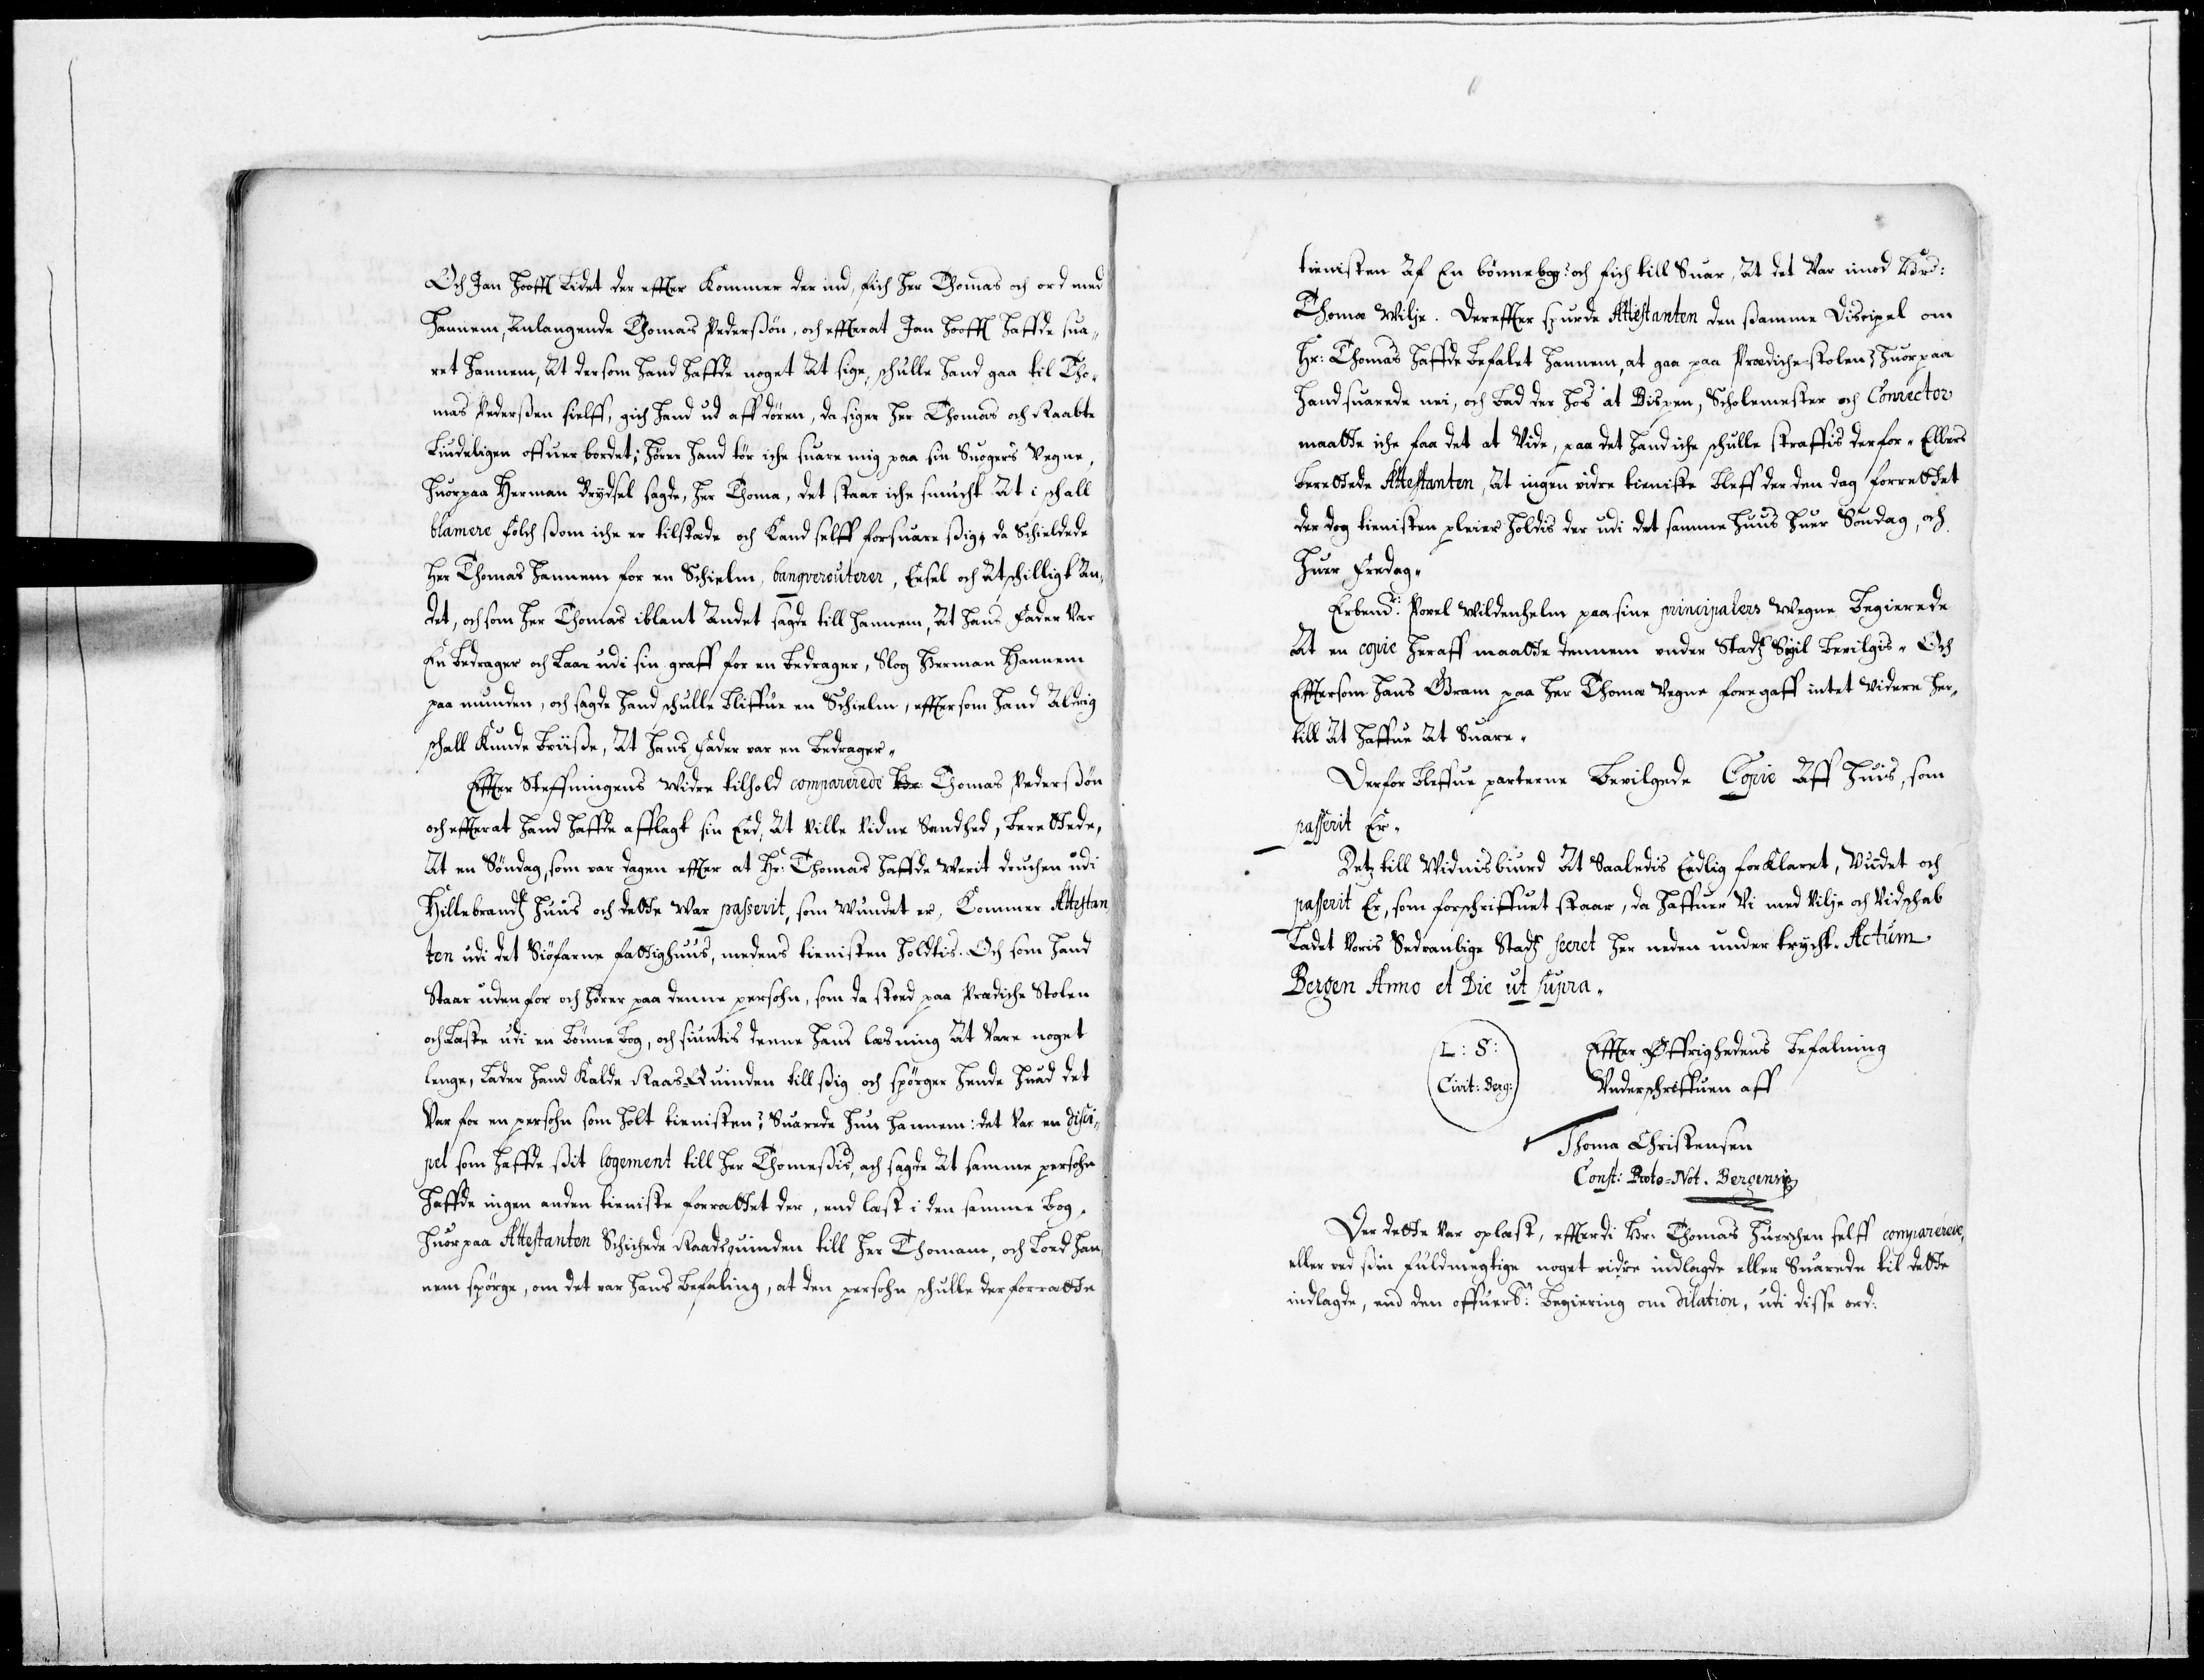 Och Jan Hooff Lidet der effter Kommer der ind, fich Her Thomas och ord med
Hannem, Anlangende Thomas Pederssøn, och efterat Jan Hooff haffde sua„
ret Hannem, At dersom Hand haffde noget At sige, schulle Hand gaa til Tho„
mas Pederssen sielff, gich Hand ud aff døren, da siger Her Thomas och Raabte
Liudeligen offuer bordet; hører Hand tør iche suare mig paa sin Suogers Vegne,
Huorpaa Herman Brydsel sagde, Her Thoma, det staar iche smucht At i schall
blamere folch ssom iche er tilstæde och Kand selff forsuare ssig, da Schieldede
Her Thomas Hannem for en Schielm, banqverouterer, Eesel och Atschilligt An„
det, och som Her Thomas iblant Andet sagde till Hannem, At Hans Fader Var
En Bedrager och Laae udi sin graff for en bedrager, Slog Herman Hannem
paa munden, och sagde Hand schulle bliffue en Schielm, effter som Hand Aldrig
schall Kunde beviisse, At Hans Fader var en Bedrager„
Effter Steffningens Widre tilhold comparerede Thomas Pederssøn
och efterat Hand haffde afflagt sin Eed, At Ville Vidne Sandhed, berettede,
At en Søndag, som var dagen effter at Hr: Thomas haffde Werit druchen udi
Hillebrandtz Huus och dette War passerit, som Wundet er, Kommer Attestan
ten udi det Siøfarne fattighuus, medens tienisten holdtis. Och som Hand
Staar uden for och hører paa denne persohn, som da stoed paa Prædiche Stolen
och Læste udi en Bønne Bog, och siuntis denne Hans læsning At Være noget
lenge, Lader Hand Kalde Raads-Quinden till ssig och spørger Hende Huad det
Var for en persohn som holt tienisten? Suarede Hun Hannem: det Var en disci„
pel som haffde ssit logement till Her Thomessis, och sagde At samme persohn
haffde ingen anden tieniste forrættet der, end læst i den samme Bog,
Huorpaa Attestanten Schichede Raadsquinden till Her Thomam, och Loed Han„
nem spørge, om det var Hans Befaling, at den persohn schulle der forrætte
tienisten af En bønnebog? och fich till Suar, At det Var imod Hrd:
Thomæ Wilje. Dereffter spurde Attestanten den ssamme Discipel om
Hr: Thomas haffde Befalet Hannem, at gaa paa Prædiche-stolen? Huorpaa
Hand suarede nei, och bad der hos at Bispen, Scholemester och Conrector
maatte iche faa det at Vide, paa det Hand iche schulle straffis derfor„ Ellers
berettede Attestanten, At ingen vidre tieniste bleff der den dag forrettet
der dog tienisten pleier holdis der udi det samme Huus Huer Søndag, och
Huer Fredag„
Erbemd: Povel Wildenhelm paa sine principalers Wegne begierede
At en copie heraff maatte dennem under Stadtz Sigil bevilgis„ Och
Efftersom Hans Gram paa Her Thomæ Vegne foregaff intet Videre Her„
till At haffue At Suare„
Derfor bleffue parterne bevilgede Copie Aff Huis, som
passerit Er„
Detz till Widnisbiurd At Saaledis Eedlig forklaret, Vudet och
passerit Er, som forschriffuet staar, da haffuer Vi med Vilje och Vidschab
Ladet Voris Sedvanlige Stadtz secret her neden under trycht. Actum
Bergen Anno et Die ut supra„
L: S:
Civit: Berg:
Effter Øffrighedens befalning
Underschreffuen aff
Thoma Christensen
Const: Proto=Not. Bergensis
Der dette Var oplæst, efterdi Hr: Thomas Huerchen selff comparerede,
eller ved ssin fuldmegtige noget vidre indlagde eller Suarede til dette
indlagde, end den offuerbn: Begiering om dilation, udi disse ord: